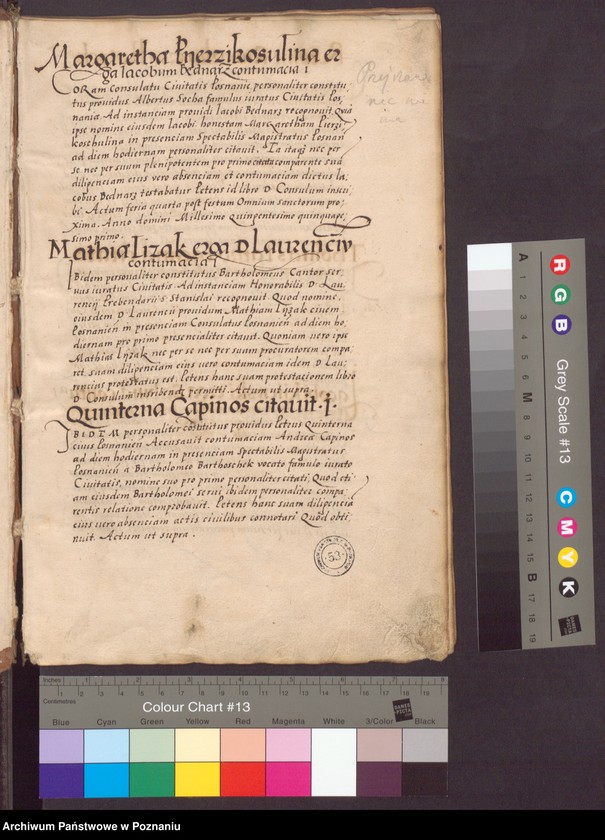 Margaretha Pyerzikosulina er
ga Iacobum Bednarz contumacia 1
CORam Consulatu Civitatis Posnanie personaliter constitu
tus providus Albertus Socha famulus iuratus Civitatis Pos
nanie Ad instanciam providi Iacobi Bednarz recognovit Quia
ipse nomine eiusdem Iacobi honestam Margaretham Pierzi
koschulina in presenciam Spectabilis Magistratus Posnan
ad diem hodiernam personaliter citavit. Ita itaque nec per
se nec per suum plenipotentem pro primo citata comparente sua
diligenciam eius vero absenciam et contumaciam dictus Ia
cobus Bednarz testabatur Petens id libro D Consulum inscri
bi. Actum feria quarta post festum Omnium sanctorum pro
xima. Anno domini Millesimo Quingentesimo quinquage
simo primo.
Mathia Lizak erga D Laurenciu
contumacia 1
Ibidem personaliter constitutus Bartholomeus Cantor ser
vus iuratus Civitatis Ad instanciam Honorabilis D Lau
rencii Prebendarii S Stanislai recognovit Quod nomine
eiusdem D Laurencii providum Mathiam Lyzak civem
Posnanien in presenciam Consulatus Posnanien ad diem ho
diernam pro primo presencialiter citavit. Quoniam vero ipse
Mathias Lyzak nec per se nec per suum procuratorem compa
ret. suam diligenciam eius vero contumaciam idem D Lau
rencius protestatus est. Petens hanc suam protestacionem libro
D Consulum inscribendam permitti. Actum ut supra
Quinterna Capinos citavit 1.
IBIDEM personaliter constitutus providus Petrus Quinterna
civis Posnanien Accusavit contumaciam Andrea Capinos
ad diem hodiernam in presenciam Spectabilis Magistratus
Posnanien a Bartholomeo Barthoschek vocato famulo iurato
Civitatis, nomine suo pro primo personaliter citati, Quod eti
am eiusdem Bartholomei servi ibidem personaliter compa
rentis relatione comprobavit. Petens hanc suam diligencia
eius vero absenciam actis civilibus connotari Quod obti
nuit. Actum ut supra.
53
A 1 2 3 4 5 6 M 8 9 10 11 12 13 14 15 B 17 18 19
R G B
Grey Scale #13
C M Y K
Inches 1 2 3 4 5 6 7 8
Centimetres 1 2 3 4 5 6 7 8 9 10 11 12 13 14 15 16 17 18 19
Colour Chart #13
DANES PICTA
Blue Cyan Green Yellow Red Magenta White 3/Color Black
Archiwum Państwowe w Poznaniu